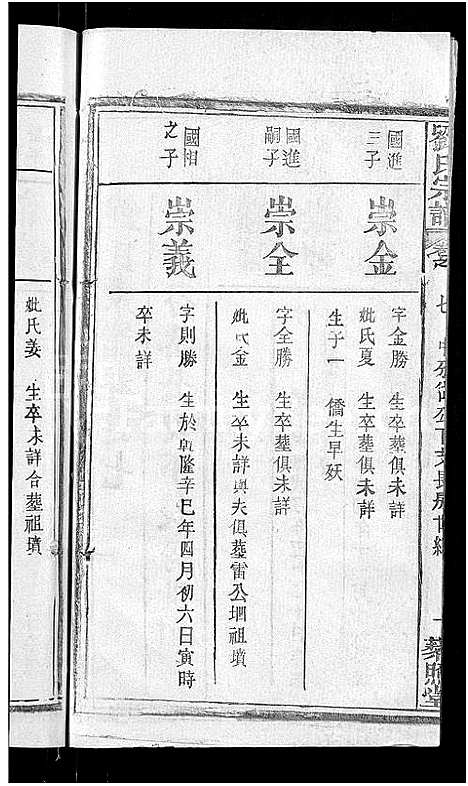 劉氏宗譜
國進三子
崇金
字金勝 生卒塟俱未詳
妣氏夏 生卒塟俱未詳
生子一 僑生早殀
國進嗣子
崇全
字全勝 生卒塟俱未詳
妣氏金 生卒未詳與夫俱塟雷公垇祖墳
國相之子
崇義
字則勝 生於乾隆辛巳年四月初六日寅時
卒未詳
妣氏姜 生卒未詳合塟祖墳